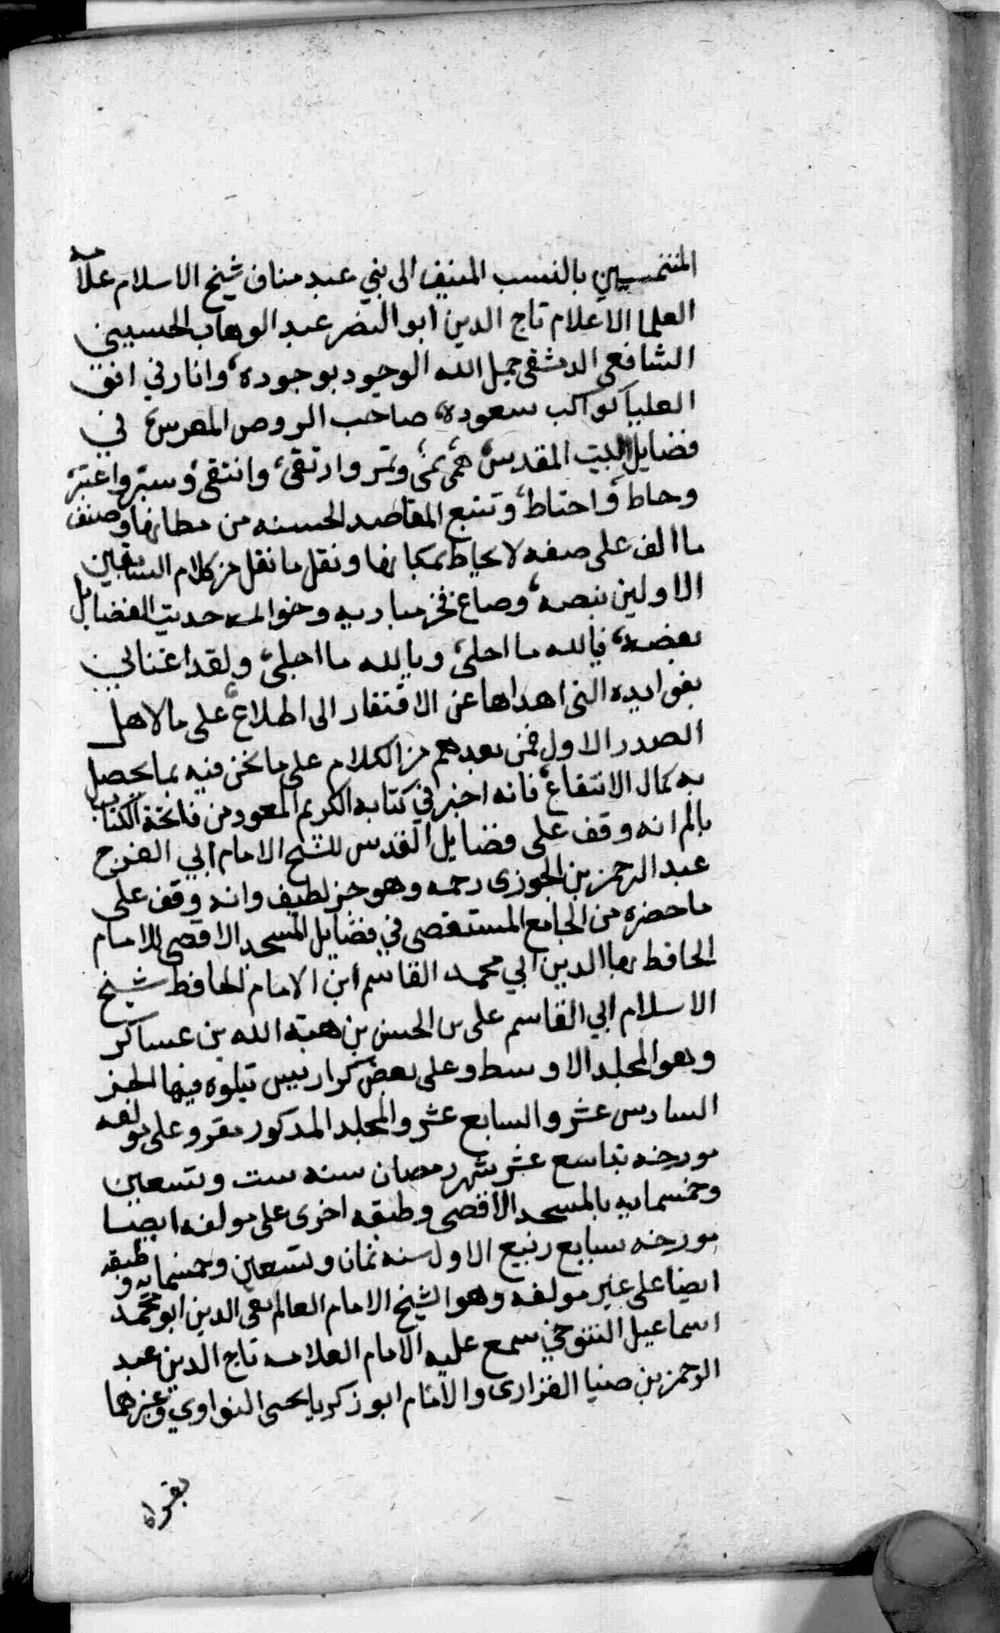 المنتمسين بالنسب المنيف الى بني عبد مناف شيخ الاسلام علامة
العلما الاعلام تاج الدين ابو النضر عبد الوهاب الحسيني
الشافعي الدمشقي جمل الله الوجود بوجوده وانار في افق
العليا كواكب سعوده صاحب الروض المغرس في
فضايل البيت المقدس وارتقى وانتقى وسبر واعتبر
وحاط واحتاط وتتبع المقاصد الحسنه من مظانها وصنف
ما الف على صفه لا يحاط بمكانها ونقل ما نقل من كلام السابقين
الاولين بنصه وصاغ حديث الفضايل
بفصه فيالله ما احلى ويالله ما اجلى ولقد اغناني
بفوايده التي اهداها عن الافتقار الى اطلاع على ما لاهل
الصدر الاول فمن بعدهم من الكلام على ما نحن فيه بما يحصل
به كمال الانتفاع فانه اخبر في كتابه الكريم المعوذ من فاتحة الكتاب
بالم انه وقف على فضايل القدس للشيخ الامام ابي الفرج
عبد الرحمن بن الجوزى رحمه وهو جز لطيف وانه وقف على
ما حضره من الجامع المستقصى في فضايل المسجد الاقصى للامام
الحافظ بها الدين ابي محمد القاسم ابن الامام الحافظ شيخ
الاسلام ابي القاسم على بن الحسن بن هبة الله بن عساكر
وهو المجلد الاوسط وعلى بعض كراريس تيلوه فيها الجز
السادس عشر والسابع عشر والمجلد المذكور مقرو على مولفه
مورخه تباسع عشر شهر رمضان سنه ست وتسعين
وخمسمايه بالمسجد الاقصى وطبقه اخرى على مولفه ايضا
مورخه سابع ربيع الاول سنه ثمان وتسعين وخمسمايه وطبقه
ايضا على غير مولفه وهو الشيخ الامام العالم تقي الدين ابو محمد
اسماعيل التنوخي سمع عليه الامام العلامه تاج الدين عبد
الرحمن بن ضيا الفزارى والامام ابو زكريا يحيى النواوي وغيرهما
بقراة